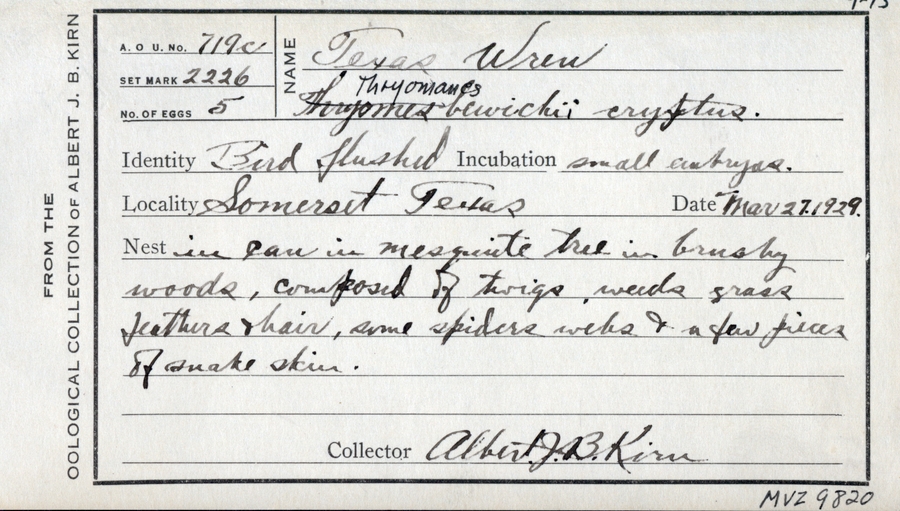 FROM THE
OOLOGICAL COLLECTION OF ALBERT J. B. KIRN
A. O. U. No. 719c
SET MARK 2226
No. OF EGGS 5
NAME
Texas Wren
Thryomanes
Thryomes bewickii cryptus.
Identity Bird flushed Incubation small embryos.
Locality Somerset Texas Date Mar 27. 1929.
Nest in can in mesquite tree in brushy
woods, composed of twigs, weeds grass
feathers & hair, some spiders webs & a few pieces
of snake skin.
Collector Albert J. B. Kirn
MVZ 9820